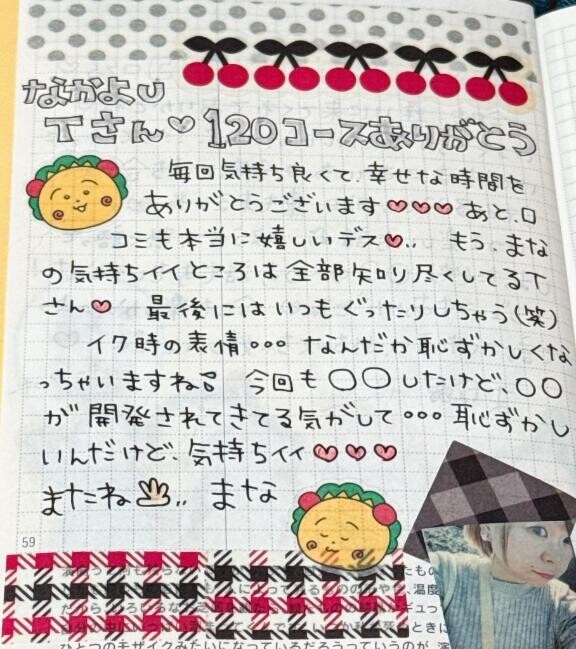 なかよし
Tさん♡120コースありがとう
毎回気持ち良くて、幸せな時間を
ありがとうございます♡♡♡ あと、口
コミも本当に嬉しいデス♡.. もう、まな
の気持ちイイところは全部知り尽くしてるT
さん♡ 最後にはいつもぐったりしちゃう(笑)
イク時の表情…なんだか恥ずかしくな
っちゃいますね 今回も〇〇したけど、〇〇
が開発されてきてる気がして…恥ずかし
いんだけど、気持ちイイ♡♡♡
またね.. まな
59
ひとつのモザイクみたいになっているだろうっていうのが、演